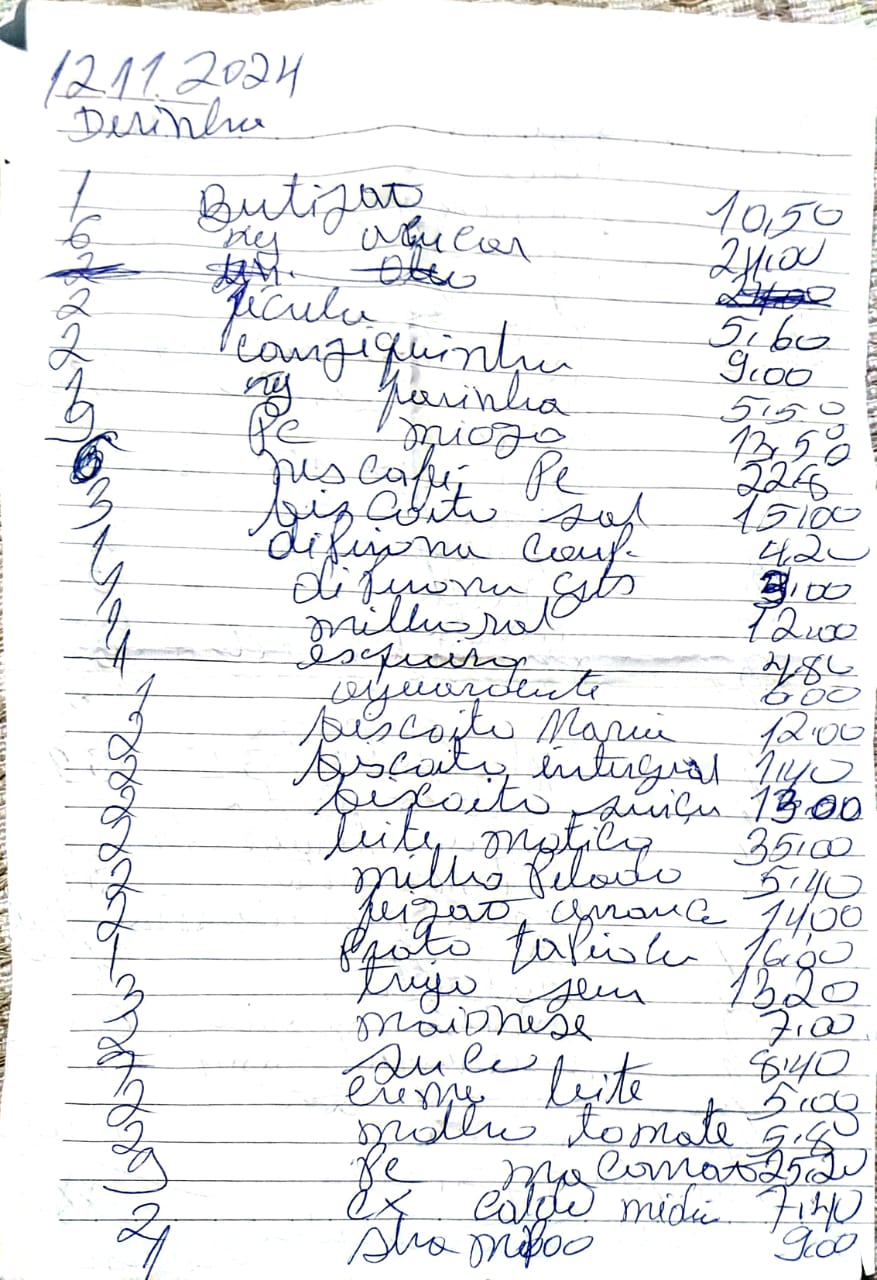 12.11.2024
Derinha
1 Butijao 10,50
6 kg asucar 24,00
2 un. Oleo 24,00
2 fécula 5,60
2 canjiquinha 9,00
1 kg farinha 5,50
9 Pc miojo 13,50
6 nescafé Pc 22,8
3 biscoito sal 15,00
1 dipirona comp. 4,20
1 dipirona gts 3,00
1 milho ral 12,00
1 4,80
1 aguardente 6,00
2 biscoito Maria 12,00
2 biscoito integral 11,40
2 biscoito suiça 13,00
2 leite matica 35,00
2 milho Pelado 5,40
2 feijao arranca 14,00
1 Prato 16,00
3 trigo sem 13,20
2 maionese 7,00
7 suco 8,40
2 creme leite 5,00
2 molho tomate 5,8
9 Pc macarrao 25,20
2 cx caldo 7,40
1 shampoo 9,00